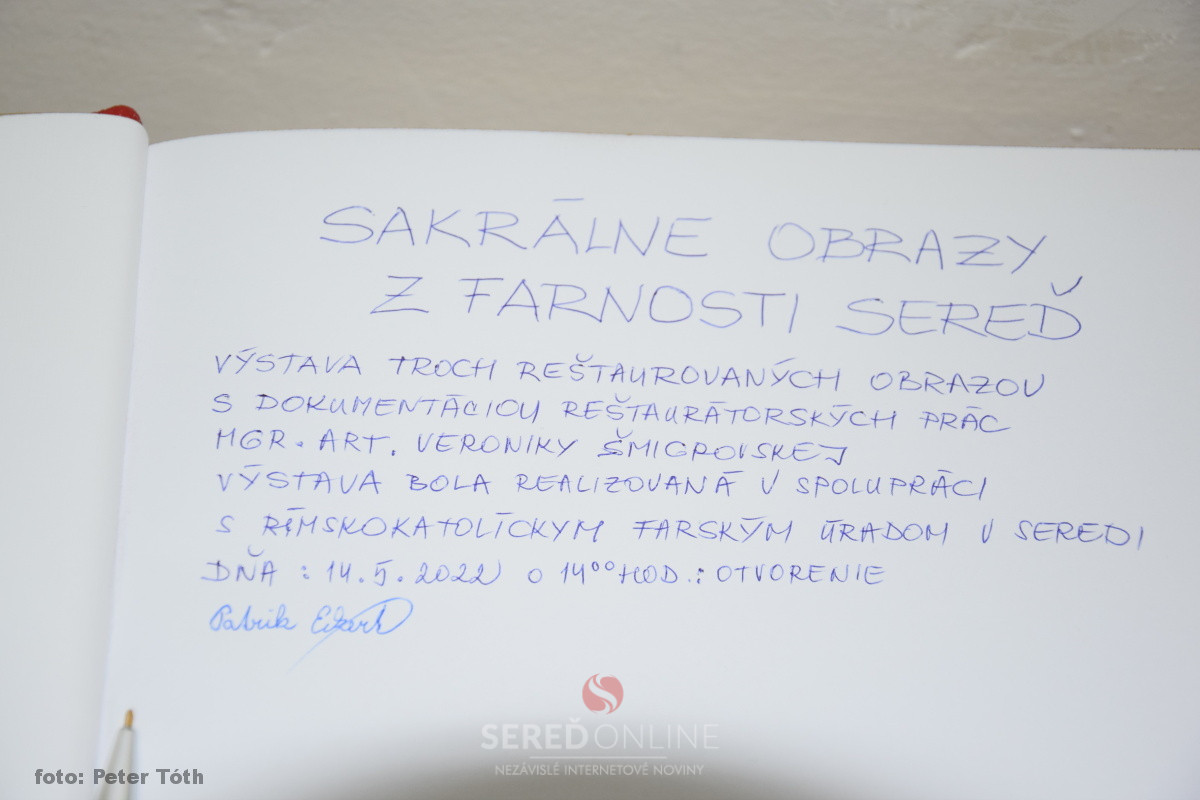 SAKRÁLNE OBRAZY
Z FARNOSTI SEREĎ
VÝSTAVA TROCH REŠTAUROVANÝCH OBRAZOV
S DOKUMENTÁCIOU REŠTAURÁTORSKÝCH PRÁC
MGR. ART. VERONIKY ŠMIGROVSKEJ
VÝSTAVA BOLA REALIZOVANÁ V SPOLUPRÁCI
S RÍMSKOKATOLÍCKYM FARSKÝM ÚRADOM V SEREDI
DŇA : 14.5.2022 O 14⁰⁰ HOD.: OTVORENIE
Patrik
SEREĎONLINE
NEZÁVISLÉ INTERNETOVÉ NOVINY
foto: Peter Tóth